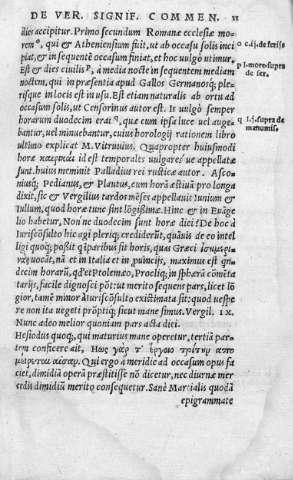 DE VER. SIGNIF. COMMEN. 11
dies accipitur. Primo secundum Romanæ ecclesiæ mo-
rem°, qui & Atheniensium fuit, ut ab occasu solis inci
piat, & in sequentē occasum finiat, et hoc uulgò utimur.
Est & dies ciuilis p, à media nocte in sequentem mediam
noctem, qui in præsentia apud Gallos Germanosq; ple-
risque in locis est in usu. Est etiam naturalis ab ortu ad
occasum solis, ut Censorinus autor est. Is uulgò semper
horarum duodecim erat q, quæ cum ipsa luce uel auge-
bantur, uel minuebantur, cuius horologij rationem libro
ultimo explicat M. Vitruuius. Quapropter huiusmodi
horæ καιρικαὶ id est temporales uulgares ue appellatæ
sunt. huius meminit Palladius rei rusticæ autor. Asco-
niusq; Pedianus, & Plautus, cum horā æstiuā pro longa
dixit, sic & Vergilius tardos mēses appellauit Iunium &
Iulium, quod horæ tunc sint lōgissimæ. Hinc & in Euāge
lio habetur, Non ne duodecim sunt horæ diei? De hoc à
Iuriscōsulto hic agi pleriq; crediderūt, quāuis de eo intel
ligi quoq; possit
maximus est
decim horarū, qd et Ptolemæo, Procliq; in sphærā cōmēta
tarijs, facile dignosci pōt: ut merito sequens pars, licet lō
gior, tamē minor à Iuriscōsulto existimata sit: quod uespe
re non ita uegeti prōptiq; sicut mane simus. Vergil. IX.
Nunc adeo melior quoniam pars acta diei.
Hesiodus quoq;, qui maturius mane operetur, tertiā par
tem conficere ait.
Qui ergo à meridie ad occasum opus fa
ciet, dimidiā operā præstitisse nō dicetur, nec diurnæ mer
cedis dimidiū merito consequetur. Sanè Martialis quodā
epigrammate
o c. ij. de ferijs
p l. more. supra
de fer.
q l. j. supra de
manumis.